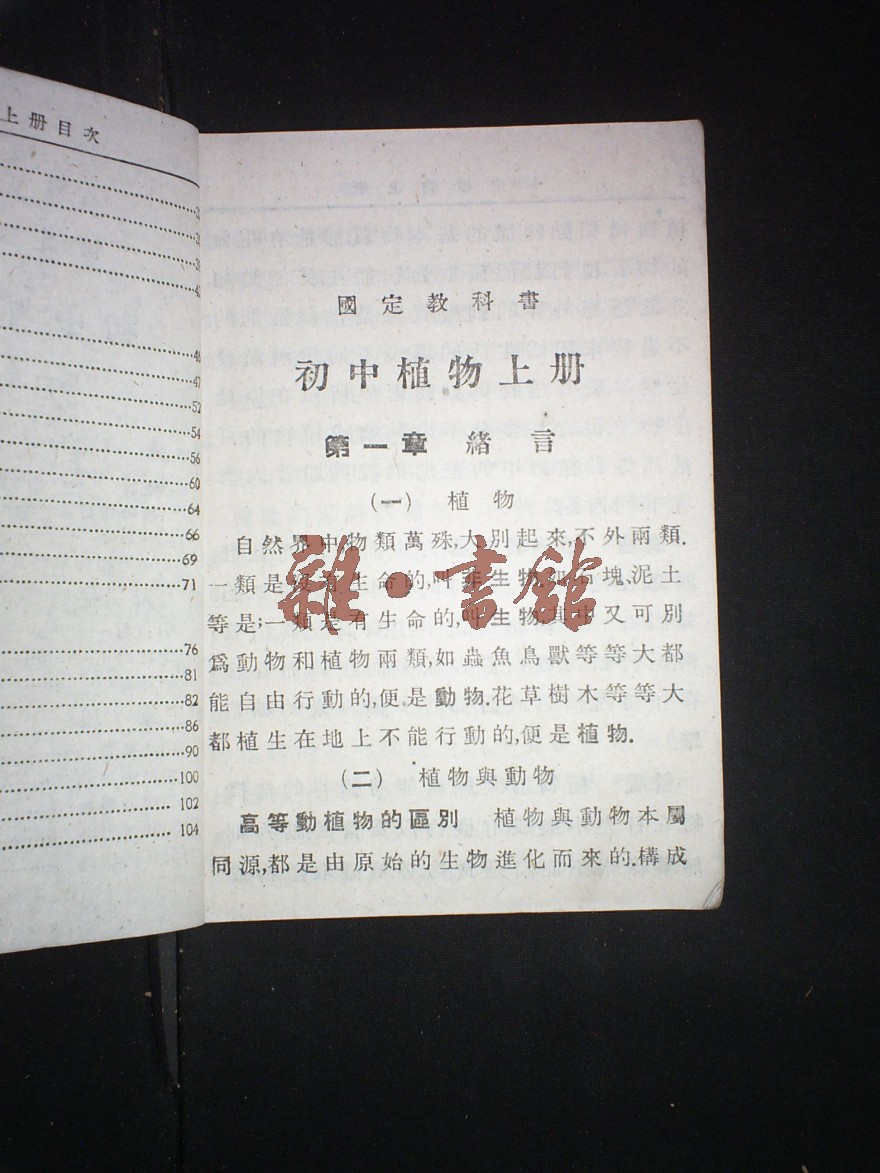 上册目次
46
47
52
54
56
60
64
66
69
71
76
81
82
86
90
100
102
104
國定教科書
初中植物上册
第一章 緒言
(一) 植物
自然界中物類萬殊,大別起來,不外兩類.
一類是沒有生命的,叫非生物,如石塊、泥土
等是;一類是有生命的,叫生物,其中又可別
爲動物和植物兩類,如蟲魚鳥獸等等大都
能自由行動的,便是動物.花草樹木等等大
都植生在地上不能行動的,便是植物.
(二) 植物與動物
高等動植物的區別 植物與動物本屬
同源,都是由原始的生物進化而來的.構成
雜·書館